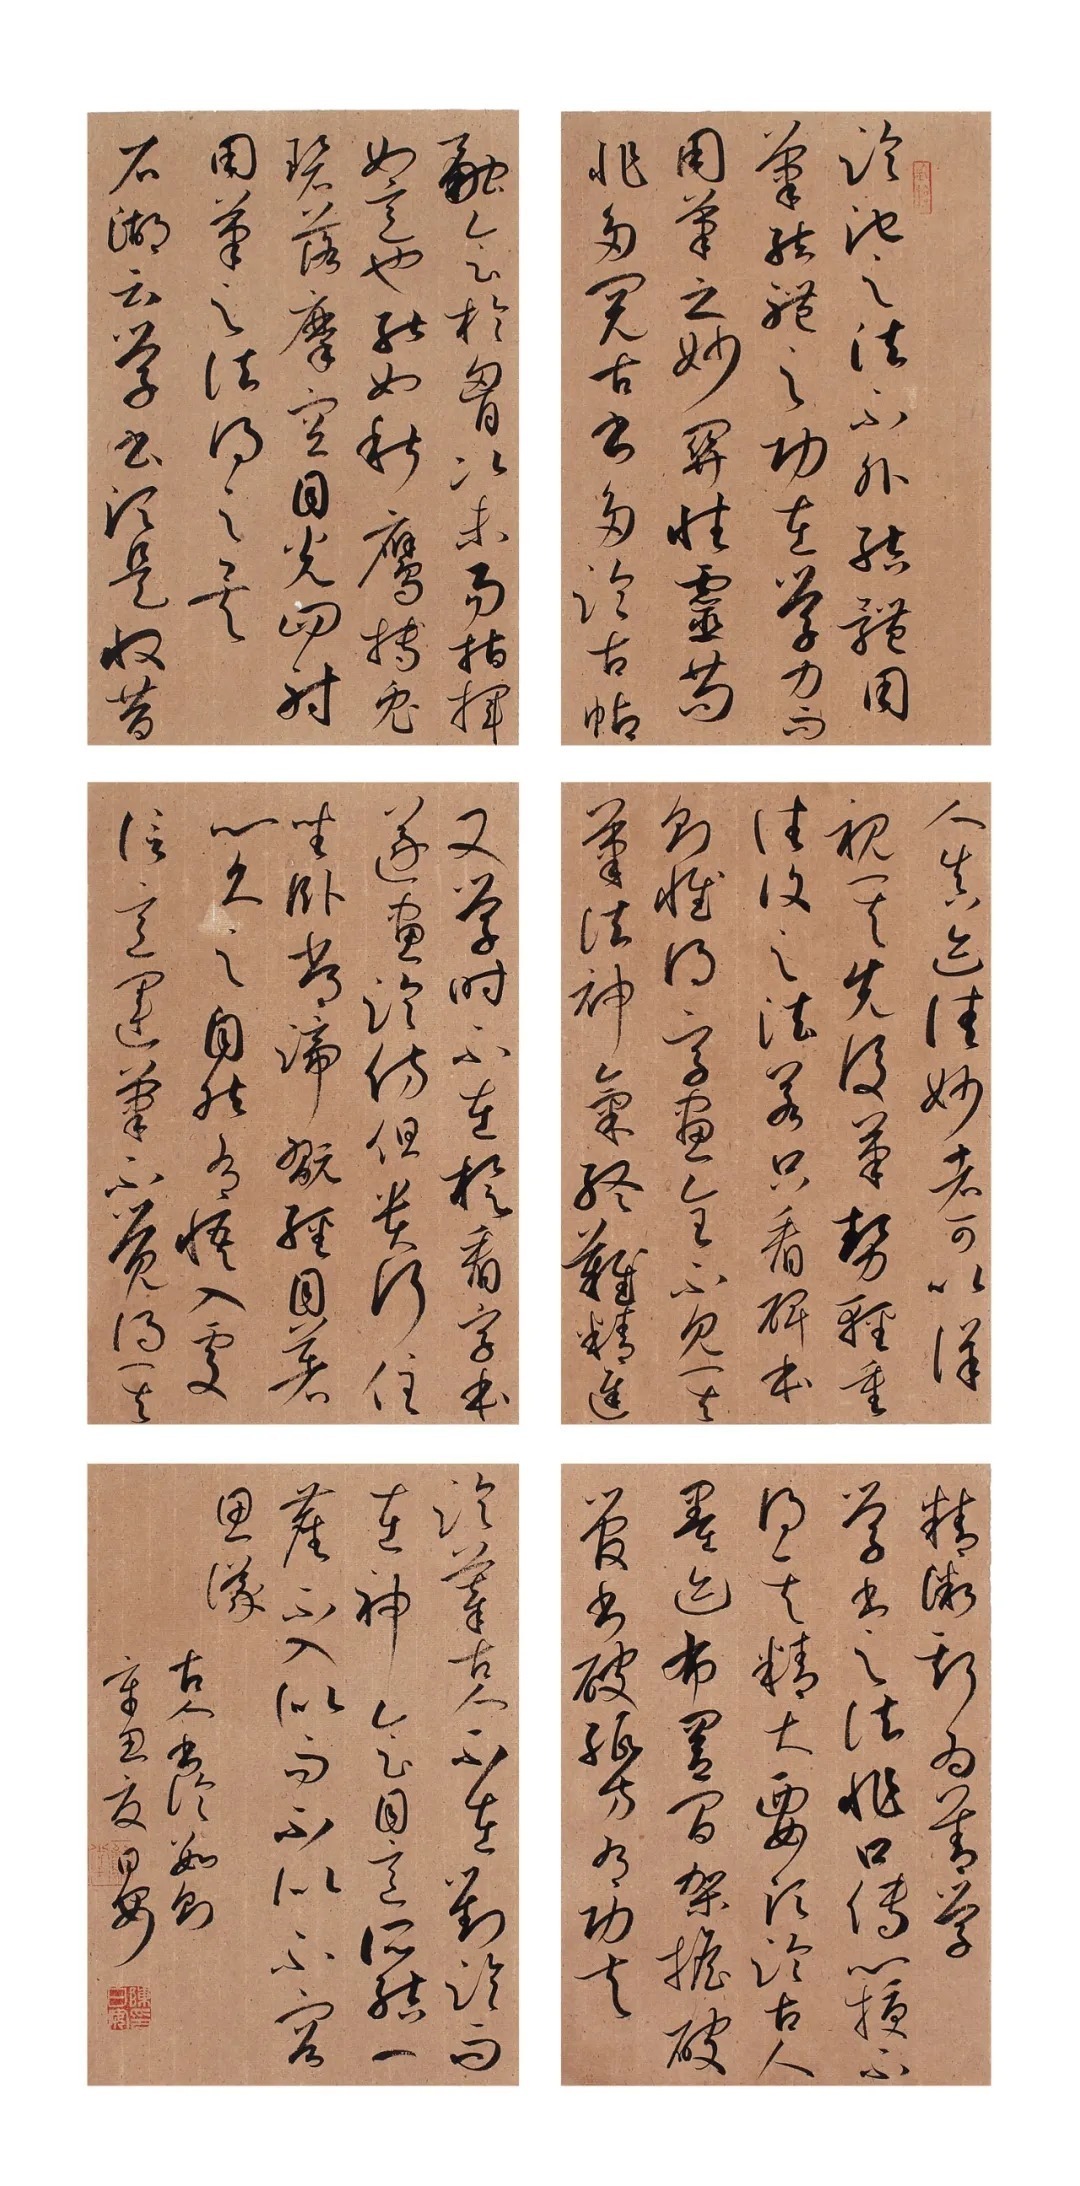 臨池之法不外結體用
筆結體之功在學力而
用筆之妙關性靈苟
非多閱古書多臨古帖
融會於胸次未易指揮
如意也能如秋鷹搏兔
碧落摩空目光四射
用筆之法得之矣
石湖云學書須是收昔
人真迹佳妙者可以詳
視其先後筆勢輕重
往復之法若只看碑本
則惟得字畫全不見其
筆法神氣終難精進
又學時不在旋看字本
逐畫臨仿但貴行住
坐臥常諦觀經目著
心久之自然有悟入處
信意運筆不覺得其
精微斯為善學
學書之法非口傳心授不
得其精大要須臨古人
墨迹布置間架擔破
管書破紙方有功夫
臨摹古人不在對臨而
在神會目意所結一
塵不入似而不似不容
思議
古人書論數則
辛丑夏日安